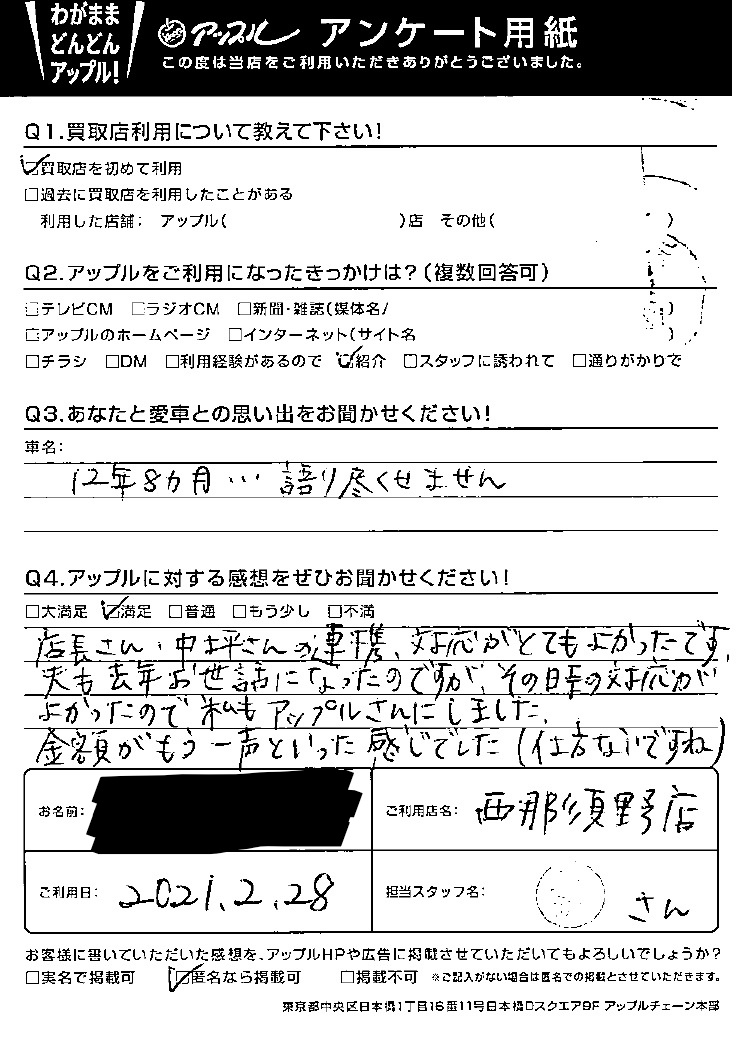 わがまま
どんどん
アップル!
アップル アンケート用紙
この度は当店をご利用いただきありがとうございました。
Q1.買取店利用について教えて下さい!
☑買取店を初めて利用
□過去に買取店を利用したことがある
利用した店舗: アップル( )店 その他( )
Q2.アップルをご利用になったきっかけは?(複数回答可)
□テレビCM □ラジオCM □新聞・雑誌(媒体名/ )
□アップルのホームページ □インターネット(サイト名 )
□チラシ □DM □利用経験があるので ☑紹介 □スタッフに誘われて □通りがかりで
Q3.あなたと愛車との思い出をお聞かせください!
車名:
12年8カ月… 語り尽くせません
Q4.アップルに対する感想をぜひお聞かせください!
□大満足 ☑満足 □普通 □もう少し □不満
店長さん・中坪さんの連携、対応がとてもよかったです。
夫も去年お世話になったのですが、その時の対応が
よかったので私もアップルさんにしました。
金額がもう一声といった感じでした(仕方ないですね)
お名前:
ご利用店名: 西那須野店
ご利用日: 2021.2.28
担当スタッフ名: さん
お客様に書いていただいた感想を、アップルHPや広告に掲載させていただいてもよろしいでしょうか?
□実名で掲載可 ☑匿名なら掲載可 □掲載不可 ※ご記入がない場合は匿名での掲載とさせていただきます。
東京都中央区日本橋1丁目16番11号日本橋Dスクエア9F アップルチェーン本部